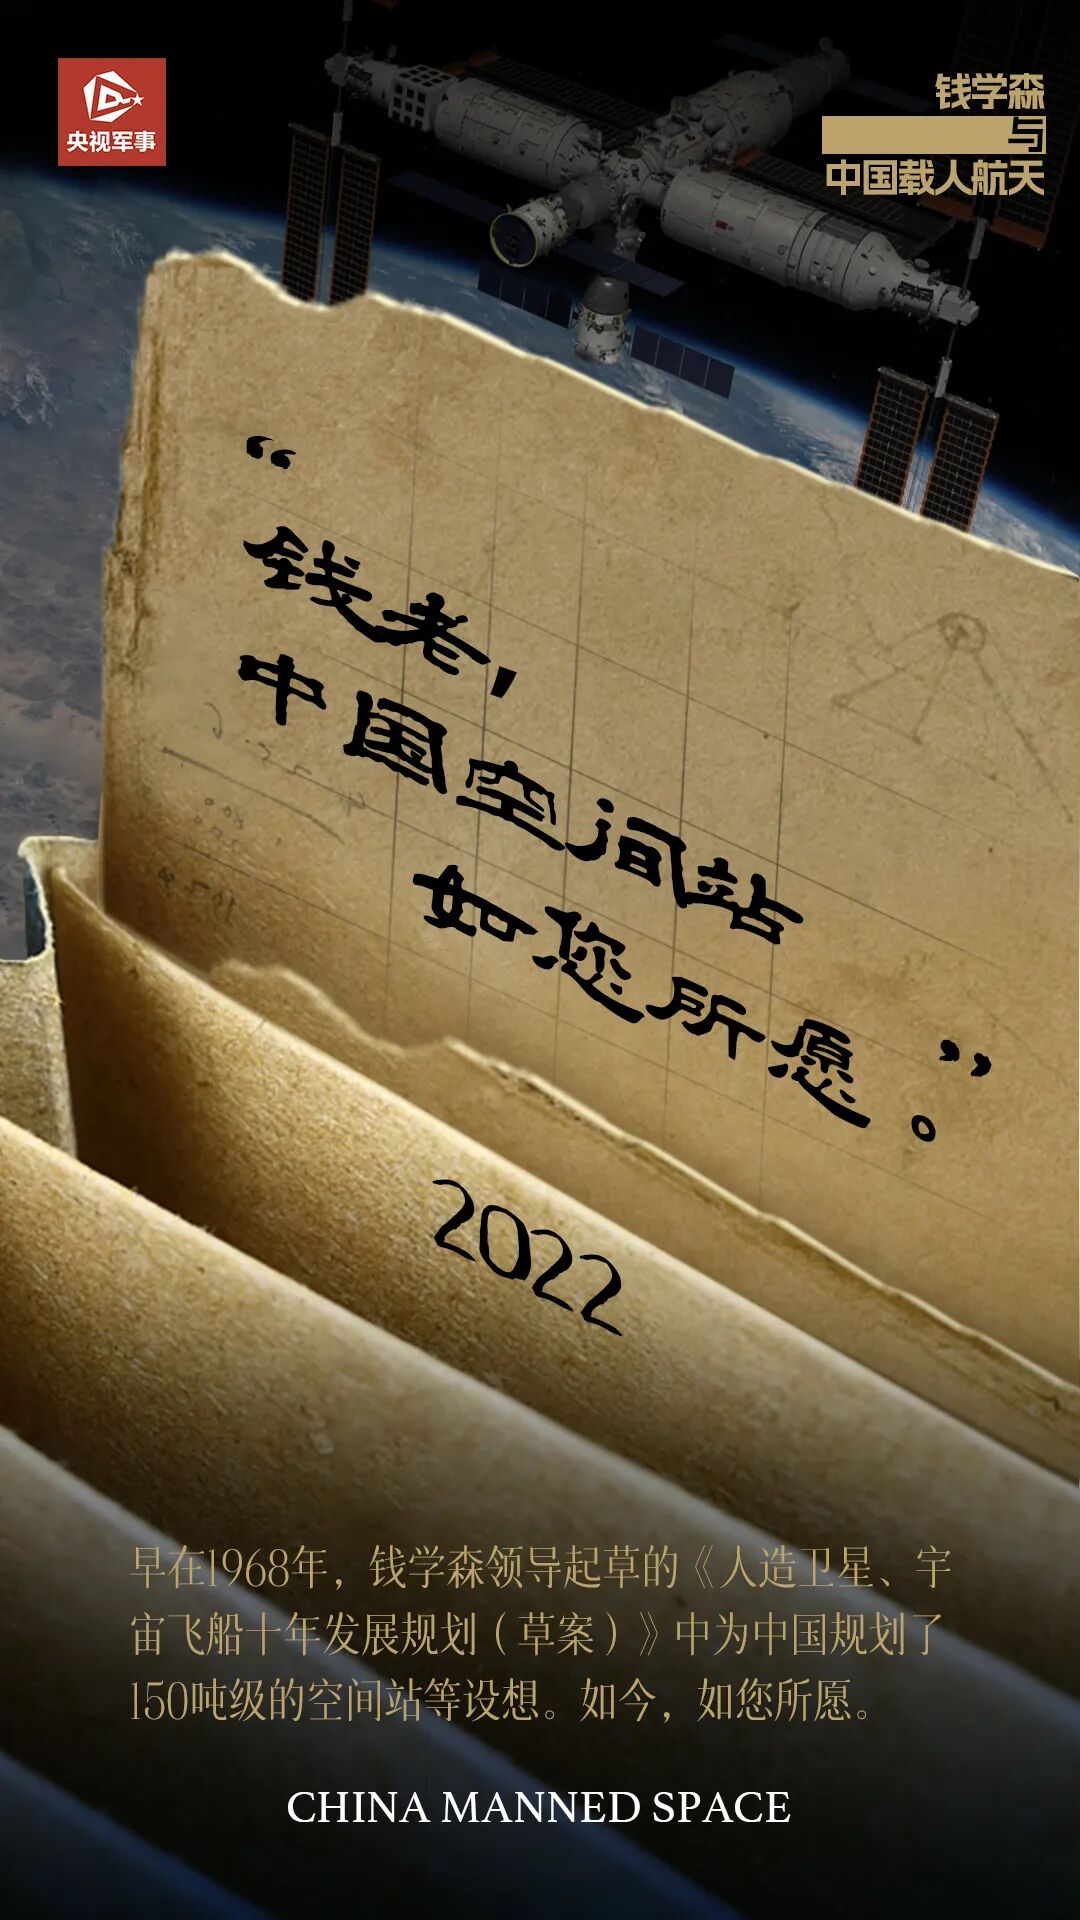 央视军事
钱学森
与
中国载人航天
“
钱老，
中国空间站
如您所愿。”
2022
早在1968年，钱学森领导起草的《人造卫星、宇
宙飞船十年发展规划（草案）》中为中国规划了
150吨级的空间站等设想。如今，如您所愿。
CHINA MANNED SPACE